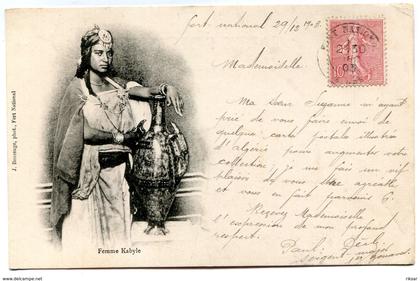 Fort national 29/12 
Mademoiselle
Ma Sœur Suzanne m'ayant
prié de vous faire envoi de
quelque carte postale illustrée
d'Algérie pour augmenter votre
collection, je me fais un vif
plaisir de vous être agréable
et vous en fait parvenir 6.
Recevez Mademoiselle
l'expression de mon profond
respect.
Paul
sergent major
Femme Kabyle
J. phot., Fort National
10